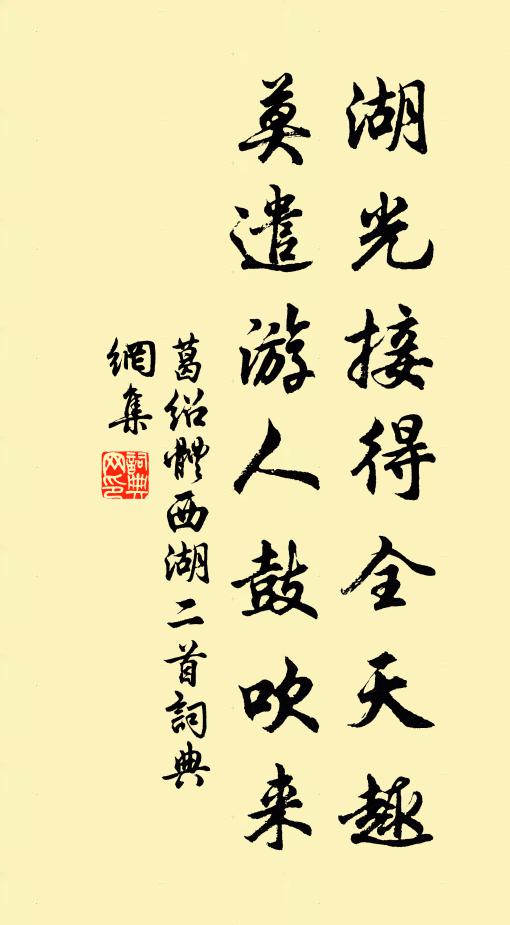 湖光接得全天趣
莫遣游人鼓吹来
葛绍體西湖二首詞典
網集
詞典網印